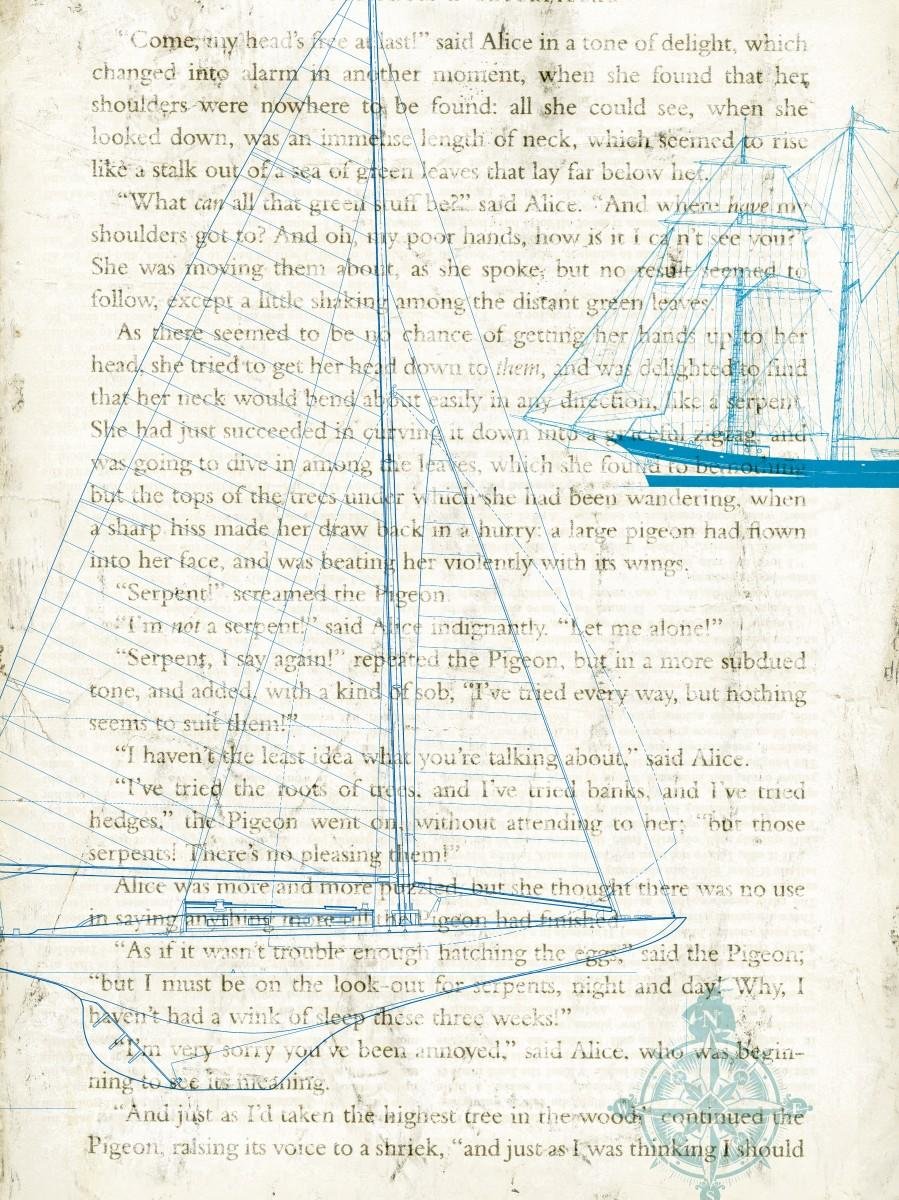 “Come, my head’s free at last!” said Alice in a tone of delight, which
changed into alarm in another moment, when she found that her
shoulders were nowhere to be found: all she could see, when she
looked down, was an immense length of neck, which seemed to rise
like a stalk out of a sea of green leaves that lay far below her.
“What can all that green stuff be?” said Alice. “And where have my
shoulders got to? And oh, my poor hands, how is it I ca n’t see you?”
She was moving them about, as she spoke, but no result seemed to
follow, except a little shaking among the distant green leaves.
As there seemed to be no chance of getting her hands up to her
head, she tried to get her head down to them, and was delighted to find
that her neck would bend about easily in any direction, like a serpent.
She had just succeeded in curving it down into a graceful zigzag, and
was going to dive in among the leaves, which she found to be nothing
but the tops of the trees under which she had been wandering, when
a sharp hiss made her draw back in a hurry: a large pigeon had flown
into her face, and was beating her violently with its wings.
“Serpent!” screamed the Pigeon.
“I’m not a serpent!” said Alice indignantly. “Let me alone!”
“Serpent, I say again!” repeated the Pigeon, but in a more subdued
tone, and added, with a kind of sob, “I’ve tried every way, but nothing
seems to suit them!”
“I haven’t the least idea what you’re talking about,” said Alice.
“I’ve tried the roots of trees, and I’ve tried banks, and I’ve tried
hedges,” the Pigeon went on, without attending to her; “but those
serpents! There’s no pleasing them!”
Alice was more and more puzzled, but she thought there was no use
in saying anything more till the Pigeon had finished.
“As if it wasn’t trouble enough hatching the eggs,” said the Pigeon;
“but I must be on the look-out for serpents, night and day! Why, I
haven’t had a wink of sleep these three weeks!”
“I’m very sorry you’ve been annoyed,” said Alice, who was begin-
ning to see its meaning.
“And just as I’d taken the highest tree in the wood,” continued the
Pigeon, raising its voice to a shriek, “and just as I was thinking I should
N